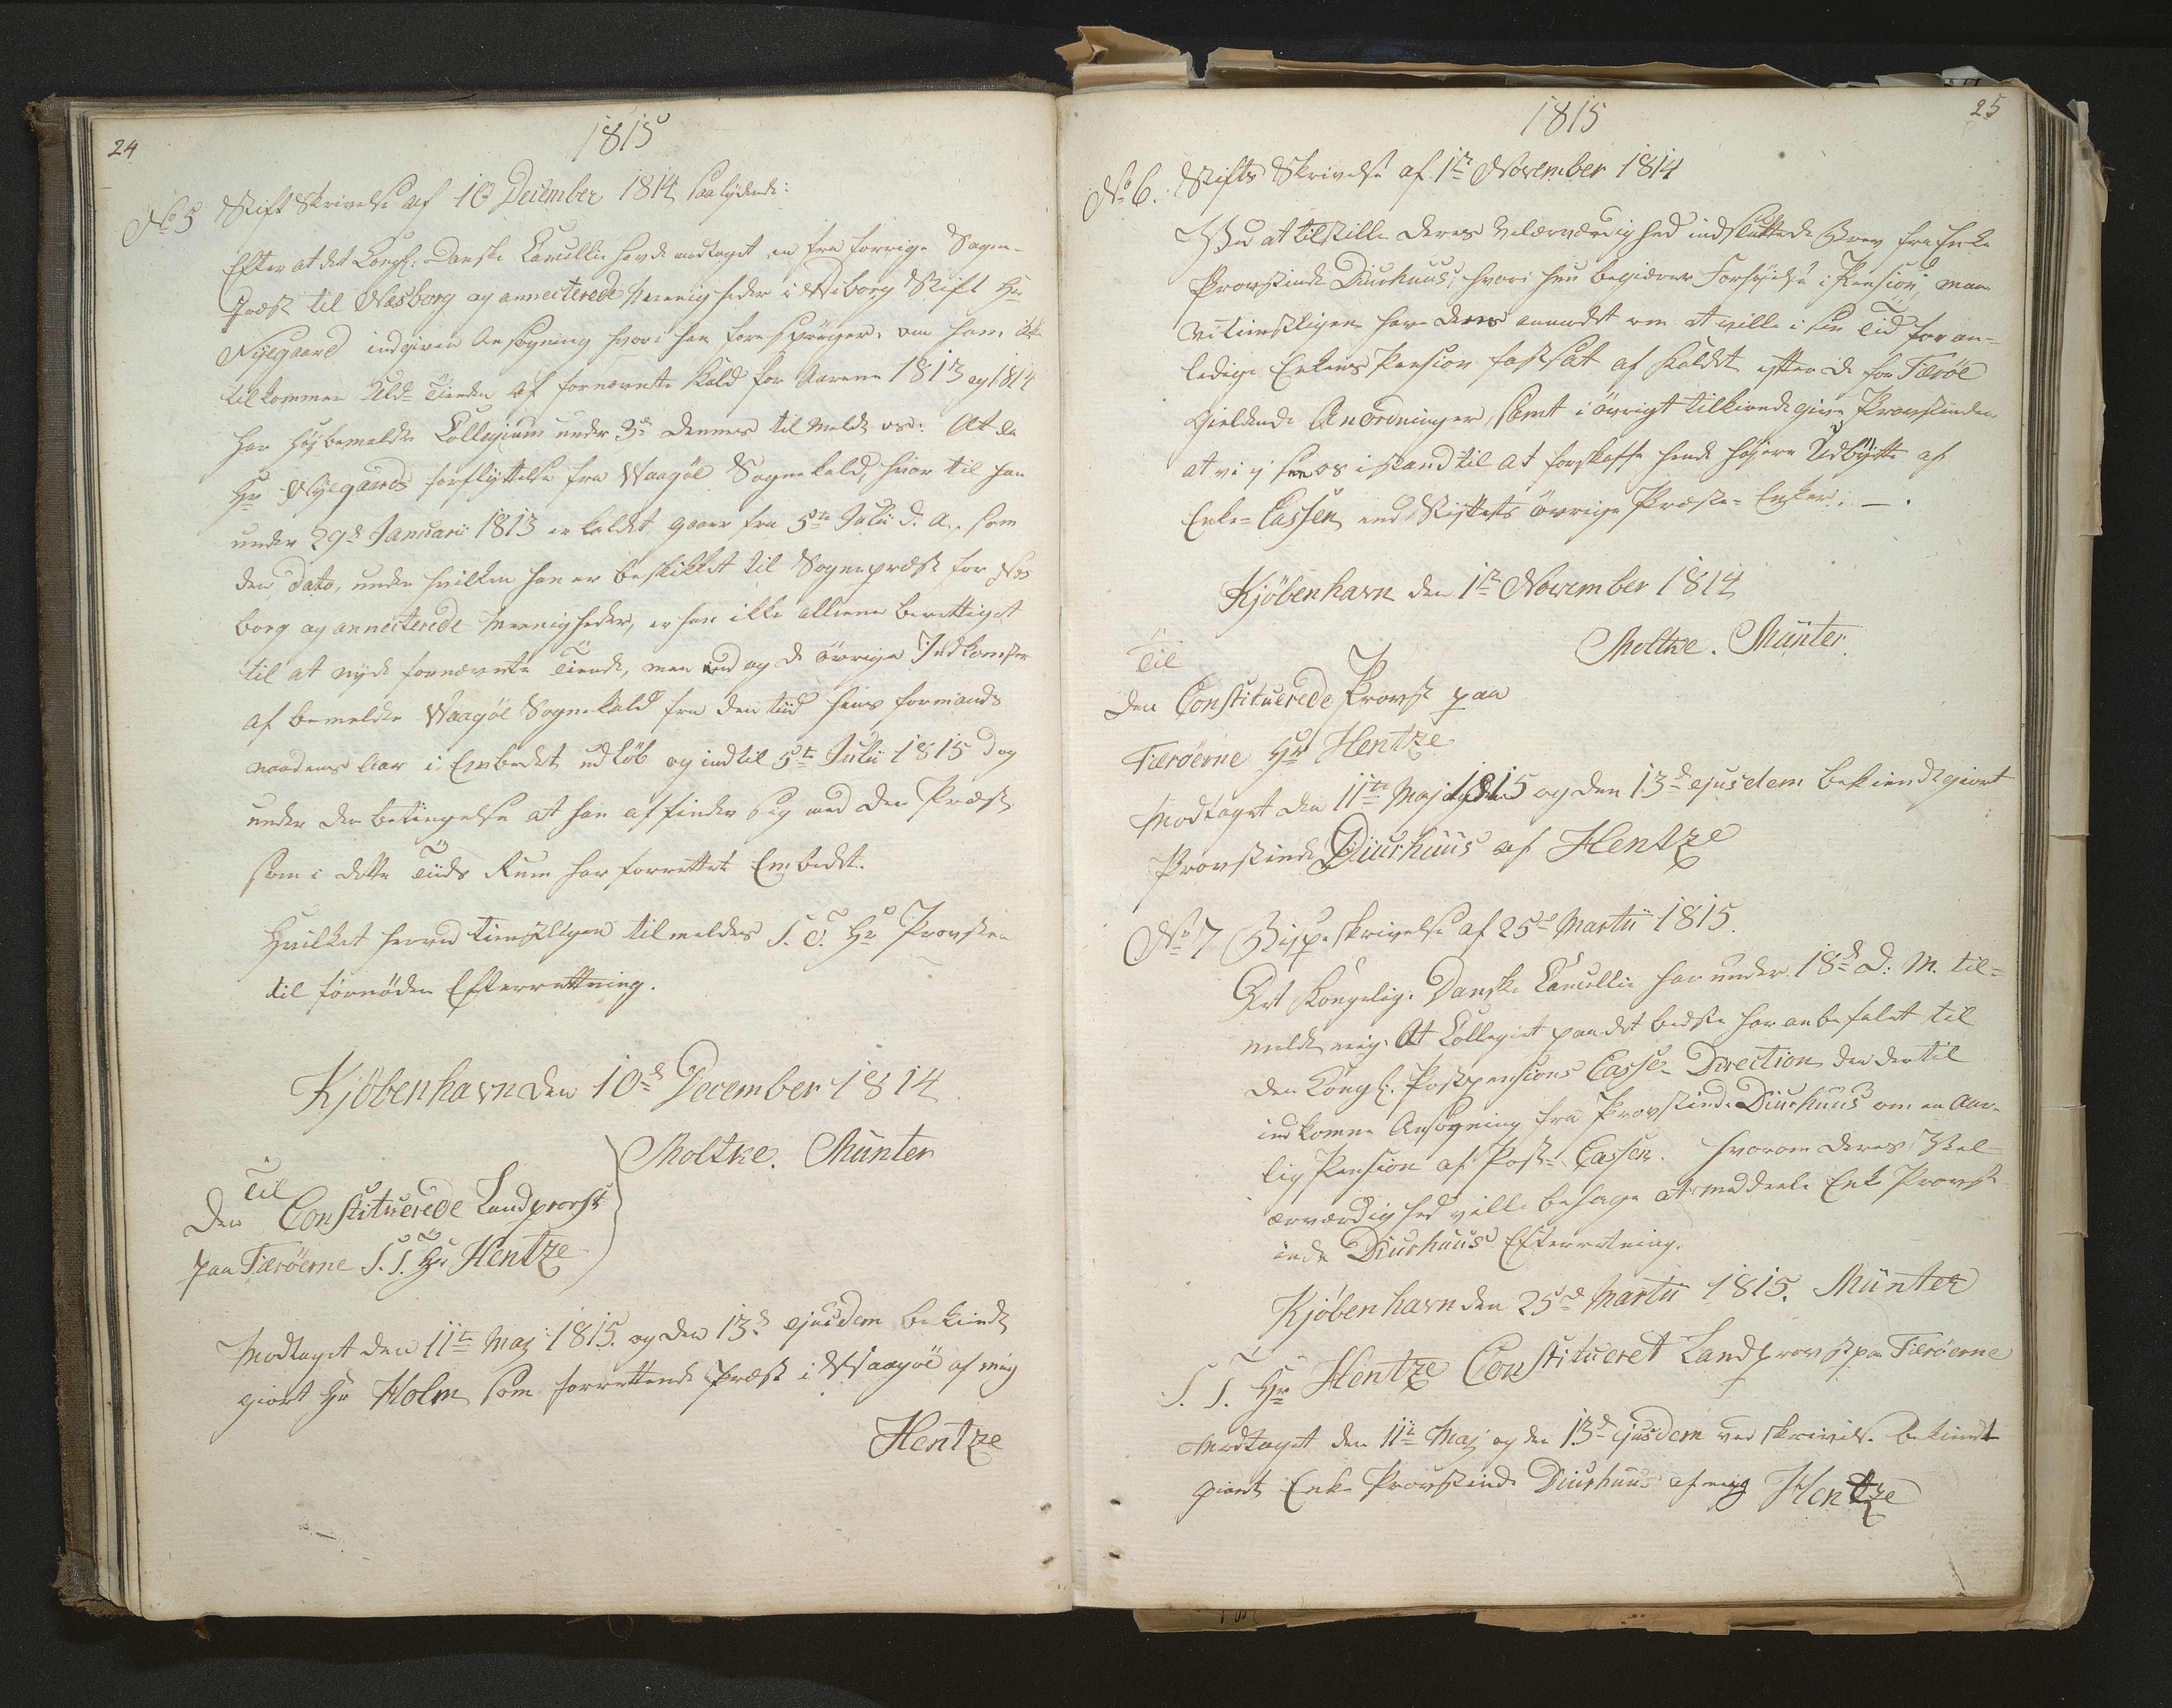 24
1815
No 5 Stift Skrivelse af 10 December 1814 saalydende:
Efter at det Kongl: Danske Cancellie havde modtaget en fra forrige Sogne-
Præst til Næsborg og annecterede Menigheder i Wiborg Stift Hr
Nyegaard indgiven Ansøgning hvori han forespörger, om ham ikke
tilkommer Uld-Tienden af fornævnte Kald for Aarene 1813 og 1814
har høybemeldte Collegium under 3d dennes tilmeldt os: At da
Hr Nyegaards forflyttelse fra Waagöe Sognekald, hvor til han
under 29d Januarii 1813 er kaldet, gaaer fra 5te Julii d. A., som
den Dato, under hvilken han er beskikket til Sognepræst for Næs
borg og annecterede Menigheder, er han ikke alleene berettiget
til at nyde fornævnte Tiende, men end og de övrige Indkomster
af bemeldte Waagöe Sognekald fra den tiid hans formands
naadens Aar i Embedet udlöb og indtil 5te Julii 1815 dog
under den betingelse at han affinder sig med den Præst
som i dette Tiids Rum har forrettet Embedet.
Hvilket herved tienstligen tilmeldes S. T. Hr Provsten
til fornöden Efterretning.
Kjöbenhavn den 10d December 1814
Moltke. Münter
Til
Den Constituerede Landprovst
paa Færöerne S. T. Hr Hentze
Modtaget den 11te Maj 1815. og den 13d ejusdem bekiendt
giort Hr Holm som forrettende Præst i Waagöe af mig
Hentze
25
1815
No 6. Stifts Skrivelse af 1te November 1814
Ved at tilstille Deres Velærværdighed indsluttede Brev fra Enke
Provstinde Diurhuus, hvori hun begiærer Forhöielse i Pension, maa
vi tienstligen have Dem anmodet om at ville i sin Tid foran-
ledige Enkens Pension fastsat af Kaldet efter de for Færöe
gieldende Anordninger, samt i övrigt tilkiendegive Provstinden
at vi ej see os i stand til at forskaffe hende höjere Udbytte af
Enke-Cassen end Stiftets övrige Præste-Enker. —.
Kjöbenhavn den 1te November 1814
Moltke. Münter.
Til
den Constituerede Provst paa
Færöerne Hr Hentze
Modtaget den 11te Maj 1815 og den 13d ejusdem bekiendtgiort
Provstinde Diurhuus af Hentze
No 7 Bispeskrivelse af 25de Martii 1815.
Det Kongelig. Danske Cancellie har under 18d d: M. til-
meldt mig: At Collegiet paa det bedste har anbefalet til
den Kongl. Postpensions Casse-Direction den dertil
indkomne Ansøgning fra Provstinde Diurhuus om en Aar-
lig Pension af Post-Cassen. hvorom Deres Vel-
ærværdighed ville behage at meddeele Enke Provst-
inde Diurhuus Efterretning.
Kjöbenhavn den 25de Martii 1815. Münter
S. T. Hr Hentze Constitueret Landprovst paa Færöerne
Modtaget den 11te Maj og den 13d ejusdem ved skrivelse bekiendt
giort Enke Provstinde Diurhuus af mig Hentze